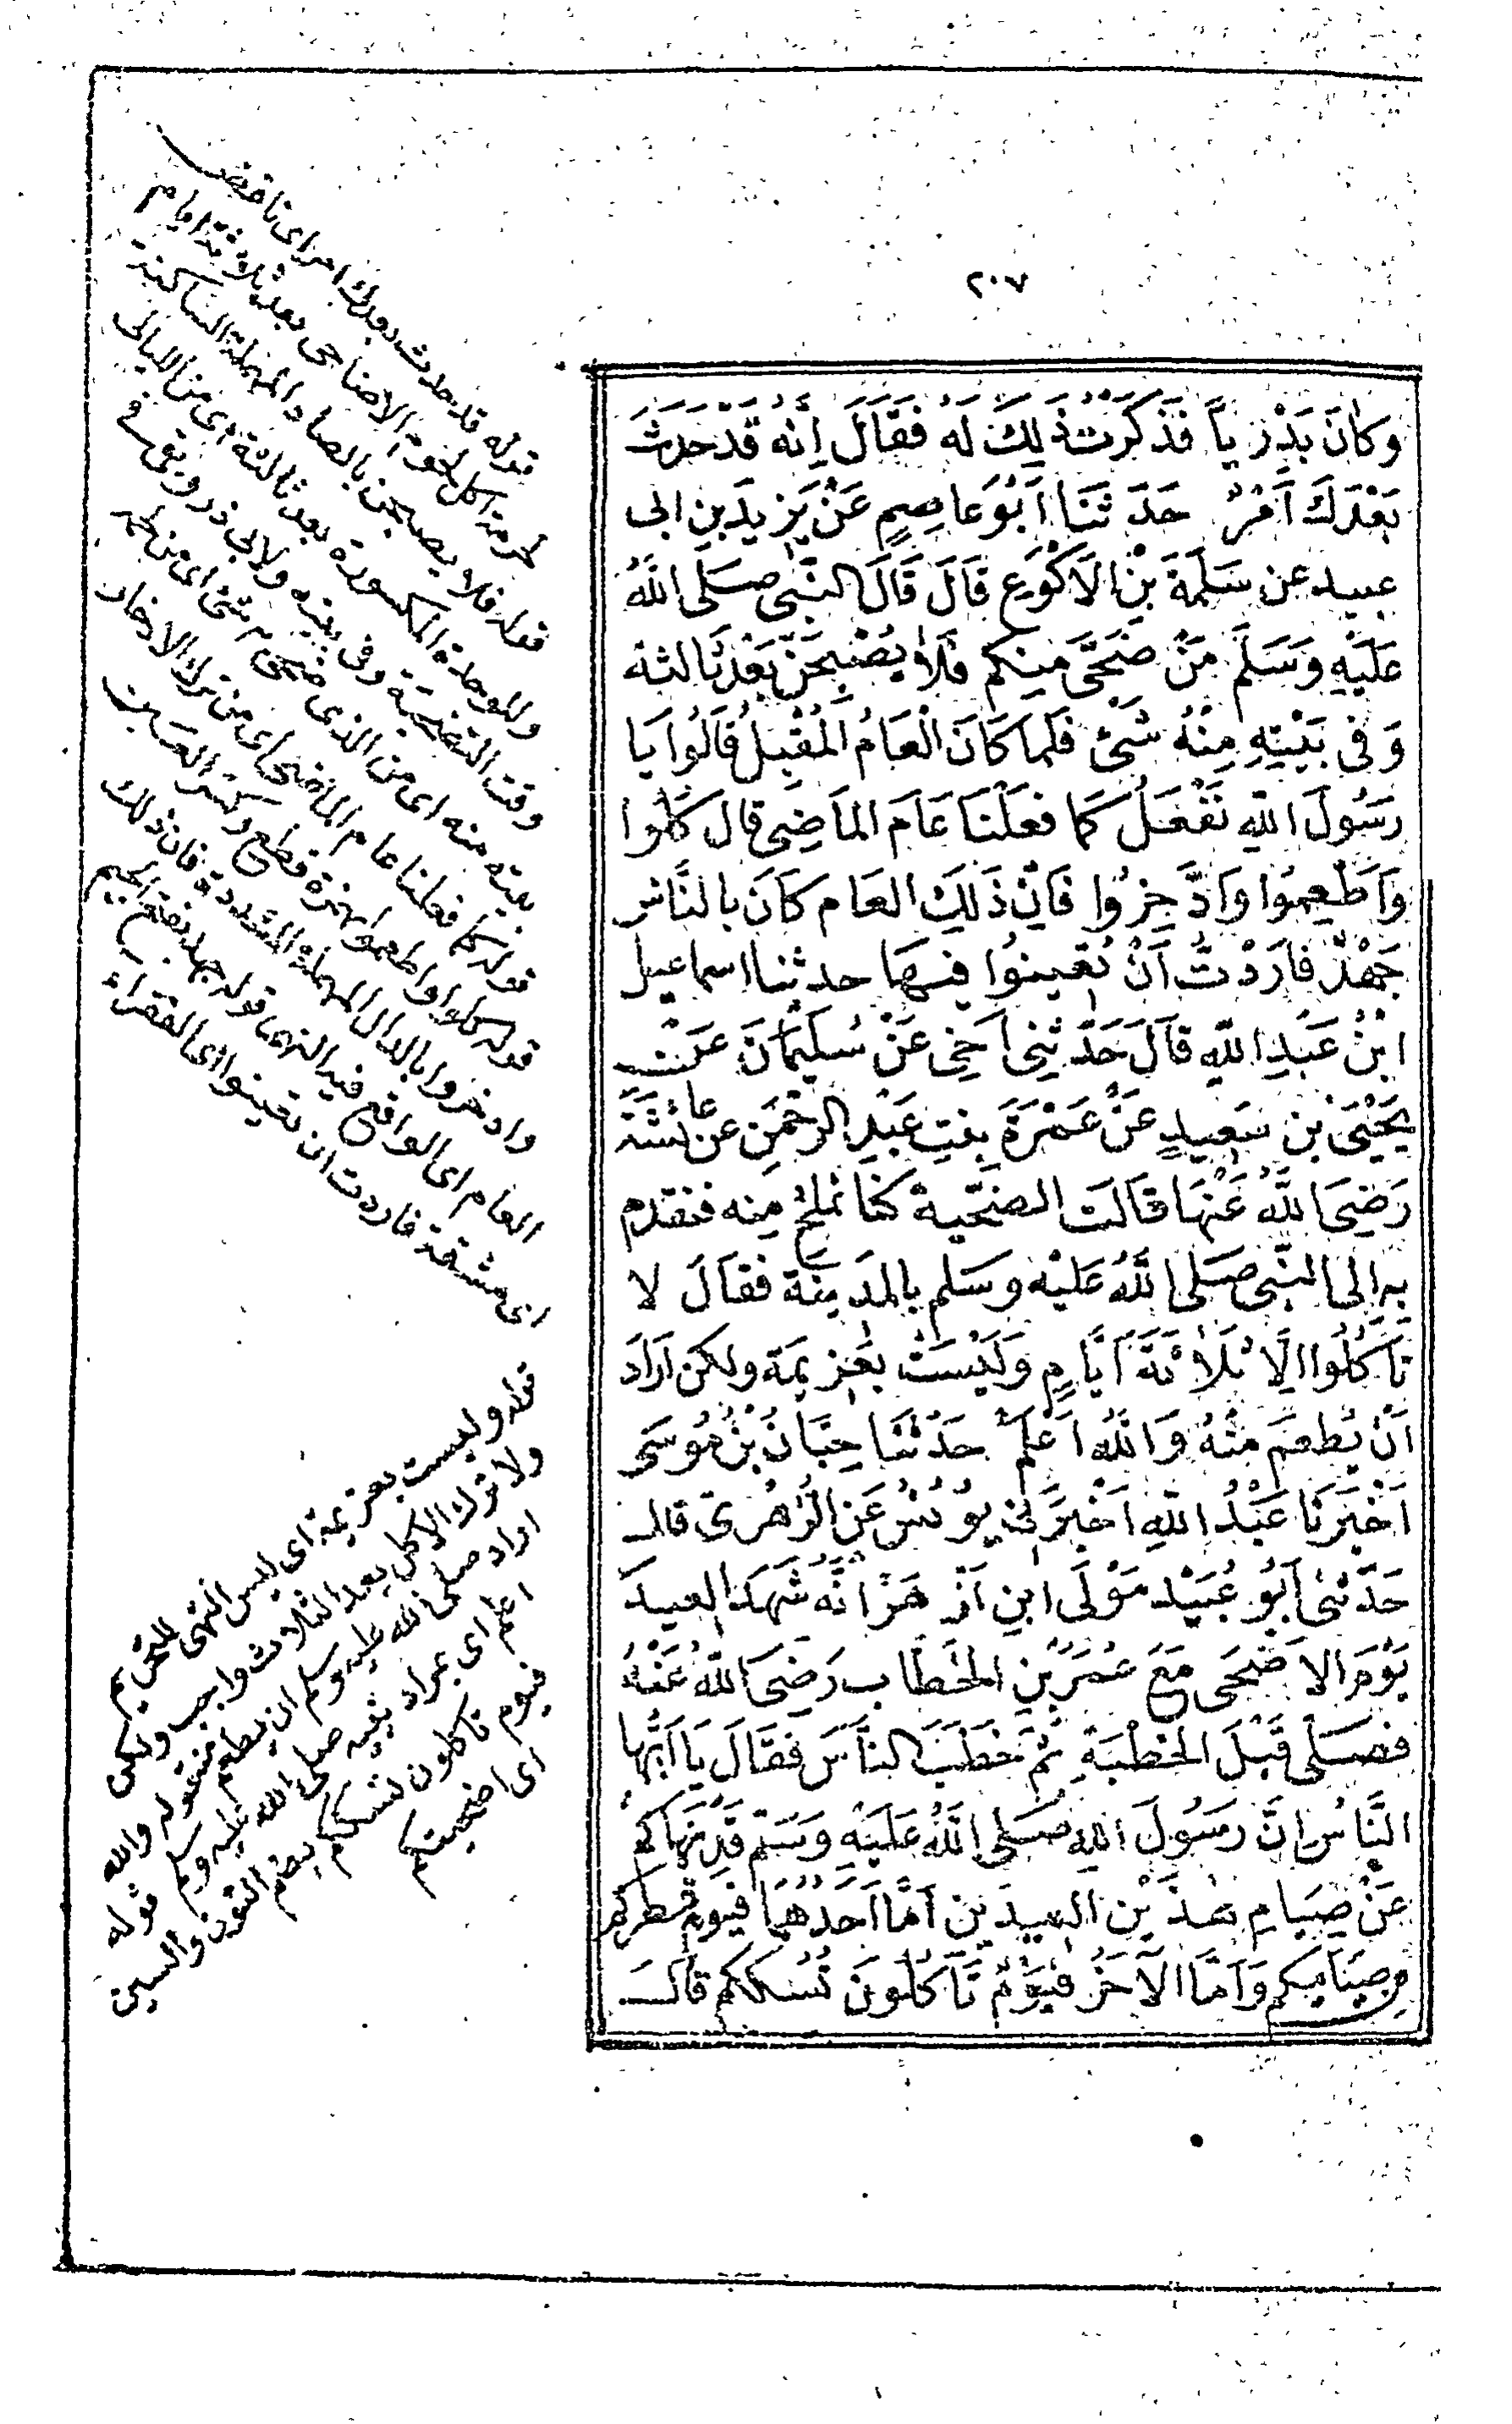 ٢٠٧
وَكَانَ بَدْرِيّاً فَذَكَرْتُ ذٰلِكَ لَهُ فَقَالَ اِنَّهُ قَدْ حَدَثَ
بَعْدَكَ اَمْرٌ حَدَّثَنَا اَبُوعَاصِمٍ عَنْ يَزِيدَ بنِ ابى
عبيد عن سَلَمَةَ بْنِ الاَكْوَعِ قَالَ قَالَ النَّبِى صَلَى اللّهُ
عَلَيْهِ وَسَلَّمَ مَنْ ضَحَّى مِنكم فَلَا يُصْبِحَنَّ بَعْدَ ثَالثة
وَفى بَيْتِهِ مِنْهُ شَىْءٌ فَلَما كَانَ الْعَامُ الْمُقْبِلُ قَالُوا يَا
رَسُولَ اللّهِ نَفْعَلُ كَمَا فعَلْنَا عَامَ المَاضِى قال كُلُوا
وَاَطْعِمُوا وَادَّخِرُوا فَاِنَّ ذَلِكَ العَام كَانَ بالنَّاس
جَهْدٌ فَارَدْتُ اَنْ تُعِينُوا فِيهَا حدثنا اسماعيل
ابْنُ عَبْدِ اللّهِ قَالَ حَدَّثَنِى اَخِى عَنْ سُلَيْمَانَ عَنْ
يَحْيَى بْنِ سَعِيدٍ عَنْ عَمْرَةَ بِنتِ عَبْدِ الرحْمنِ عن عَائشَةَ
رَضِىَ اللّهُ عَنْهَا قَالَت الضَحِّية كنا نُملِّحُ مِنه فنقدم
بِهِ اِلى النَّبِى صَلى اللّهُ عَلَيْه وسَلم بالمَدِينَة فقالَ لا
تَاكُلُوا اِلَّا ثَلَاثَةَ اَيَّامٍ وَلَيْسَتْ بِعَزِيمَة ولكن اَرَادَ
اَنْ يُطْعِمَ مِنْهُ وَاللّهُ اَعْلَمُ حَدَّثَنَا حِبَّانُ بْنُ مُوسَى
اَخْبَرَنَا عَبْدُ اللّهِ اَخْبَرَنِى يُونُسُ عَن الزُّهْرِىّ قال
حَدّثَنِى اَبُو عُبَيْد مَوْلَى ابنِ اَزْهَرَ اَنَّهُ شَهِدَ العِيدَ
يَوْمَ الاَضْحَى مَعَ عُمَرَ بْنِ الخَطَّاب رَضِىَ اللّهُ عَنْهُ
فصَلى قَبْلَ الخطْبَةِ ثُمَّ خَطَبَ النَّاسَ فقَالَ يَا اَيُّهَا
النَّاسُ اِنَّ رَسُولَ اللّهِ صَلى اللّهُ عَلَيْهِ وَسَلّم قَدْ نَهَاكُم
عَنْ صِيَامِ هٰذَيْنِ العِيدَيْنِ اَمَّا اَحَدُهُمَا فَيَومُ فطركم
مِن صِيَامِكم وَاَمَّا الآخَرُ فَيَوْمٌ تَأكُلُونَ نُسُككم قَالَ
قوله قد حدث بعدك امر اى ناقض
لحرمة اكل لحوم الاضاحى بعد ثلاثة ايام
قوله فلا يصبحن بالصاد المهملة الساكنة
والموحدة المكسورة بعد ثالثة اى من الليالى
وقت التضحية وفى بيته ولابى ذر وبقى فى
بيته منه اى من الذى ضحى به شئ اى من لحمه
قوله كما فعلنا عام الماضى اى من ترك الادخار
قوله كلوا واطعموا بهمزة قطع وكسر العين
وادخروا بالدال المهملة المشددة فان ذلك
العام اى الواقع فيه النهى قوله جهد بفتح الجيم
اى مشقة فاردت ان تعينوا اى الفقراء
قوله وليست بعزيمة اى ليس النهى للتحريم
ولا ترك الاكل بعد الثلاث واجب ولكن
اراد صلى الله عليه وسلم ان يطعم منه قوله والله
اعلم اى بمراد نبيه صلى الله عليه وسلم قوله
فيوم تاكلون نسككم بضم النون والسين
اى اضحيتكم